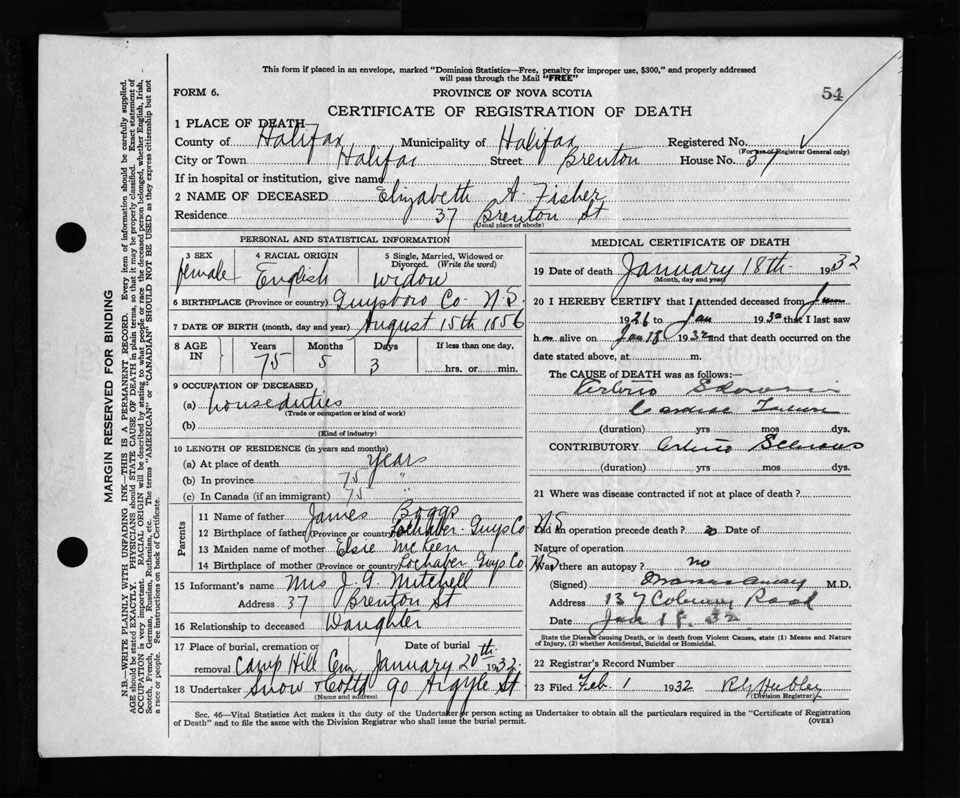 This form if placed in an envelope, marked "Dominion Statistics—Free, penalty for improper use, $300," and properly addressed
will pass through the Mail "FREE"
FORM 6.
PROVINCE OF NOVA SCOTIA
54
CERTIFICATE OF REGISTRATION OF DEATH
1 PLACE OF DEATH
County of Halifax Municipality of Halifax Registered No.
(For use of Registrar General only)
City or Town Halifax Street Brenton House No. 37
If in hospital or institution, give name
2 NAME OF DECEASED Elizabeth A. Fisher
Residence 37 Brenton St
(Usual place of abode)
PERSONAL AND STATISTICAL INFORMATION
3 SEX 4 RACIAL ORIGIN 5 Single, Married, Widowed or
Divorced. (Write the word)
female English widow
6 BIRTHPLACE (Province or country) Guysboro Co N.S.
7 DATE OF BIRTH (month, day and year) August 15th 1856
8 AGE IN Years Months Days If less than one day,
75 5 3 hrs. or min.
9 OCCUPATION OF DECEASED
(a) house duties
(Trade or occupation or kind of work)
(b)
(Kind of industry)
10 LENGTH OF RESIDENCE (in years and months)
(a) At place of death years
(b) In province 75 "
(c) In Canada (if an immigrant) 75 "
Parents
11 Name of father James Boggs
12 Birthplace of father (Province or country) Lochaber Guys Co N.S
13 Maiden name of mother Elsie McKeen
14 Birthplace of mother (Province or country) Lochaber Guys Co N.S
15 Informant's name Mrs J. A. Mitchell
Address 37 Brenton St
16 Relationship to deceased Daughter
17 Place of burial, cremation or removal Camp Hill Cem Date of burial January 20th 1932
18 Undertaker Snow & Co Ltd 90 Argyle St
(Name and address)
MEDICAL CERTIFICATE OF DEATH
19 Date of death January 18th 1932
(Month, day and year)
20 I HEREBY CERTIFY that I attended deceased from
1926 to Jan 1932 that I last saw
h alive on Jan 18 1932 and that death occurred on the
date stated above, at m.
The CAUSE of DEATH was as follows:
Cardiac Failure
(duration) yrs mos dys.
CONTRIBUTORY
(duration) yrs mos dys.
21 Where was disease contracted if not at place of death?
Did an operation precede death? no Date of
Nature of operation
Was there an autopsy? no
(Signed) M.D.
Address 137 Road
Date Jan 18. 32
State the Disease causing Death, or in death from Violent Causes, state (1) Means and Nature
of Injury, (2) whether Accidental, Suicidal or Homicidal.
22 Registrar's Record Number
23 Filed Feb. 1 1932
(Division Registrar)
Sec. 46—Vital Statistics Act makes it the duty of the Undertaker or person acting as Undertaker to obtain all the particulars required in the "Certificate of Registration
of Death" and to file the same with the Division Registrar who shall issue the burial permit.
(OVER)
MARGIN RESERVED FOR BINDING
N.B.—WRITE PLAINLY WITH UNFADING INK—THIS IS A PERMANENT RECORD. Every item of information should be carefully supplied.
AGE should be stated EXACTLY. PHYSICIANS should STATE CAUSE OF DEATH in plain terms, so that it may be properly classified. Exact statement of
OCCUPATION is very important. RACIAL ORIGIN will be described by stating to what people or race the deceased person belonged, whether English, Irish,
Scotch, French, German, Russian, Ruthenian, etc. The terms "AMERICAN" or "CANADIAN" SHOULD NOT BE USED as they express citizenship but not
a race or people. See instructions on back of Certificate.